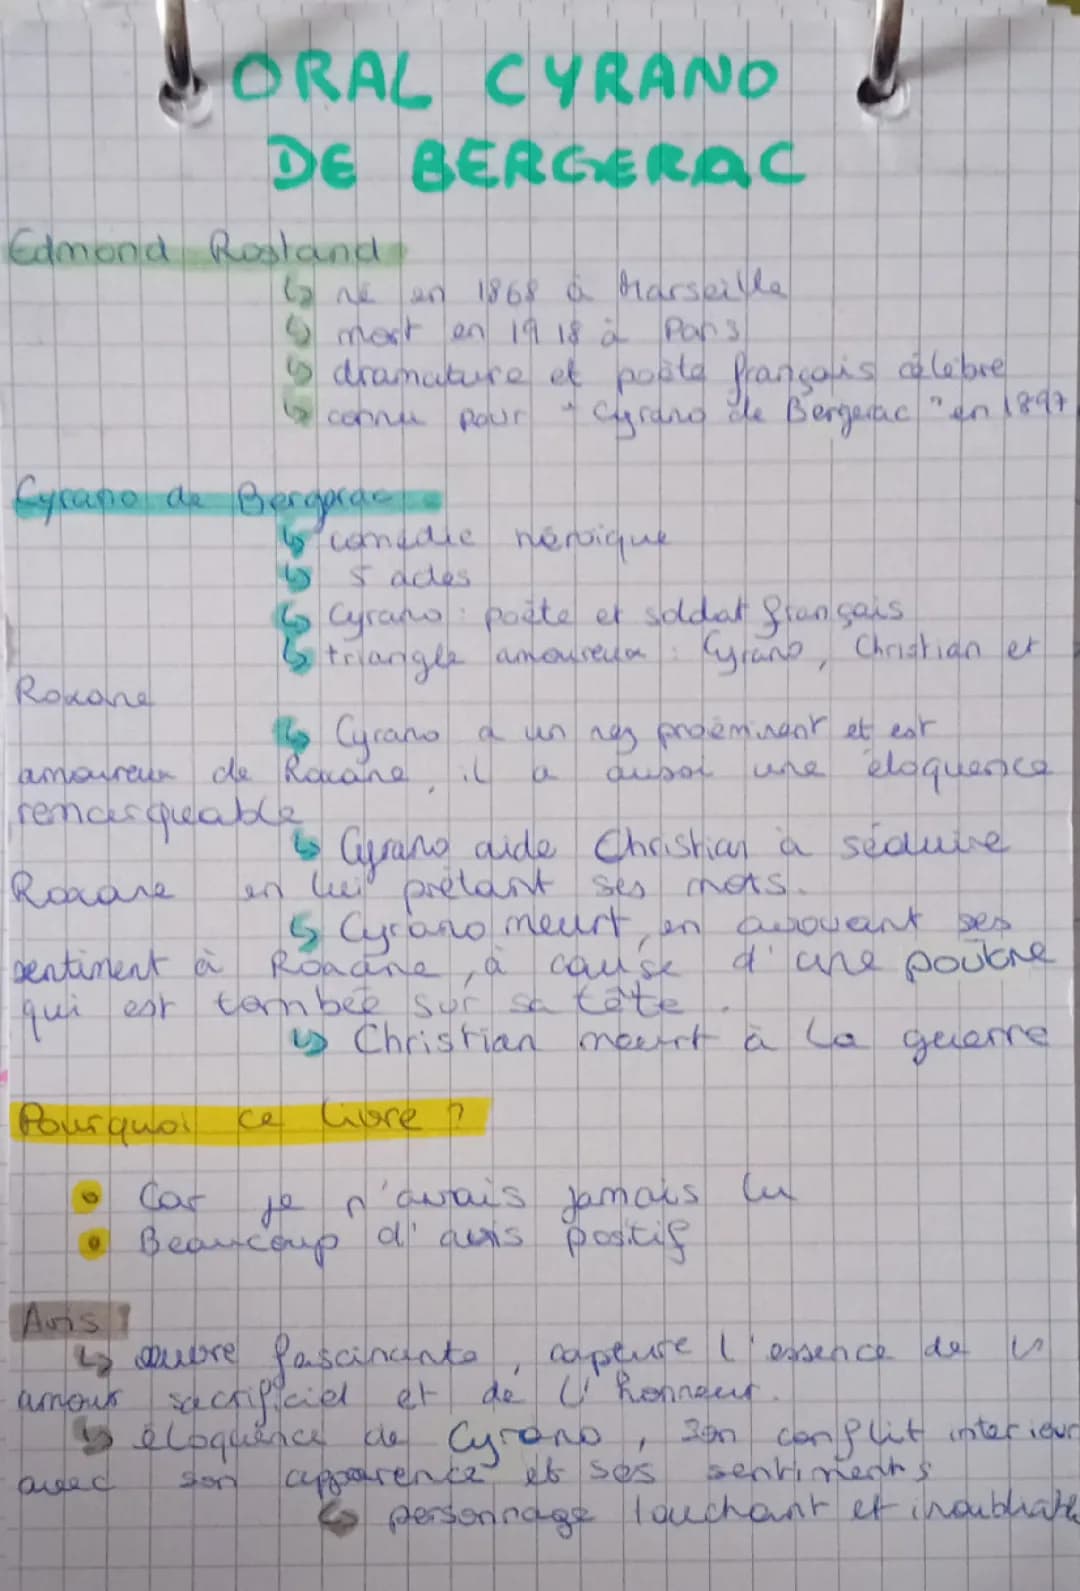 ORAL CYRANO
DE BERGERAC
Edmond Rostand
↳ né en 1868 à Marseille
↳ mort en 1918 à Paris
↳ dramature et poète français célèbre
↳ connu pour "Cyrano de Bergerac" en 1897
Cyrano de Bergerac
↳ comédie héroïque
↳ 5 actes
↳ Cyrano : poète et soldat français
↳ triangle amoureux : Cyrano, Christian et
Roxane
↳ Cyrano a un nez proéminent et est
amoureux de Roxane, il a aussi une éloquence
remarqueable
↳ Cyrano aide Christian à séduire
Roxane en lui prêtant ses mots.
↳ Cyrano meurt, en avouant ses
sentiment à Roxane, à cause d'une poutre
qui est tombée sur sa tête.
↳ Christian meurt à la guerre
Pourquoi ce livre ?
• Car je n'avais jamais lu
• Beaucoup d'avis positif
Avis :
↳ œuvre fascinante, capture l'essence de l'
amour sacrificiel et de l'honneur.
↳ éloquence de Cyrano, son conflit interieur
avec son apparence et ses sentiments
↳ personnage touchant et inoubliable